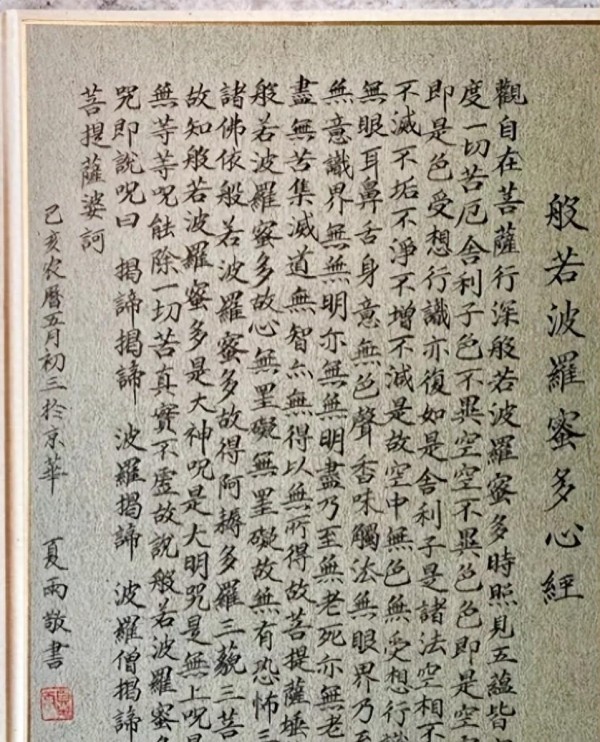 般若波羅蜜多心經
觀自在菩薩行深般若波羅蜜多時照見五蘊皆
度一切苦厄舍利子色不異空空不異色色即是空
即是色受想行識亦復如是舍利子是諸法空相不
不滅不垢不淨不增不減是故空中無色無受想行識
無眼耳鼻舌身意無色聲香味觸法無眼界乃至
無意識界無無明亦無無明盡乃至無老死亦無老
盡無苦集滅道無智亦無得以無所得故菩提薩埵
般若波羅蜜多故心無罣礙無罣礙故無有恐怖三
諸佛依般若波羅蜜多故得阿耨多羅三藐三菩
故知般若波羅蜜多是大神呪是大明呪是無上呪是
無等等呪能除一切苦真實不虛故說般若波羅蜜多
咒即說呪曰 揭諦揭諦 波羅揭諦 波羅僧揭諦
菩提薩婆訶
己亥农曆五月初三於京華 夏雨敬書